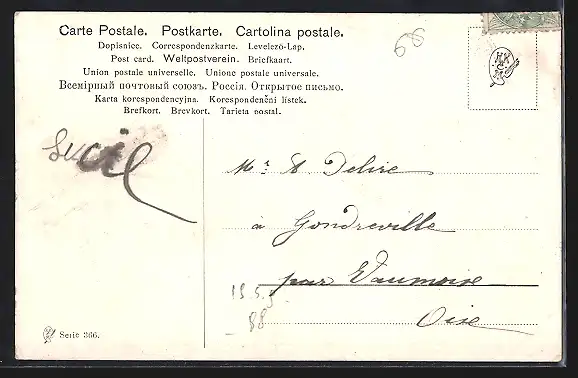 Carte Postale. Postkarte. Cartolina postale.
Dopisnice. Correspondenzkarte. Levelező-Lap.
Post card. Weltpostverein. Briefkaart.
Union postale universelle. Unione postale universale.
Всемірный почтовый союзъ. Россія. Открытое письмо.
Karta korespondencyjna. Korespondenční lístek.
Brefkort. Brevkort. Tarjeta postal.
68
Lucie
Mr A Delire
à Gondreville
par Vaumoise
Oise
88
Serie 366.